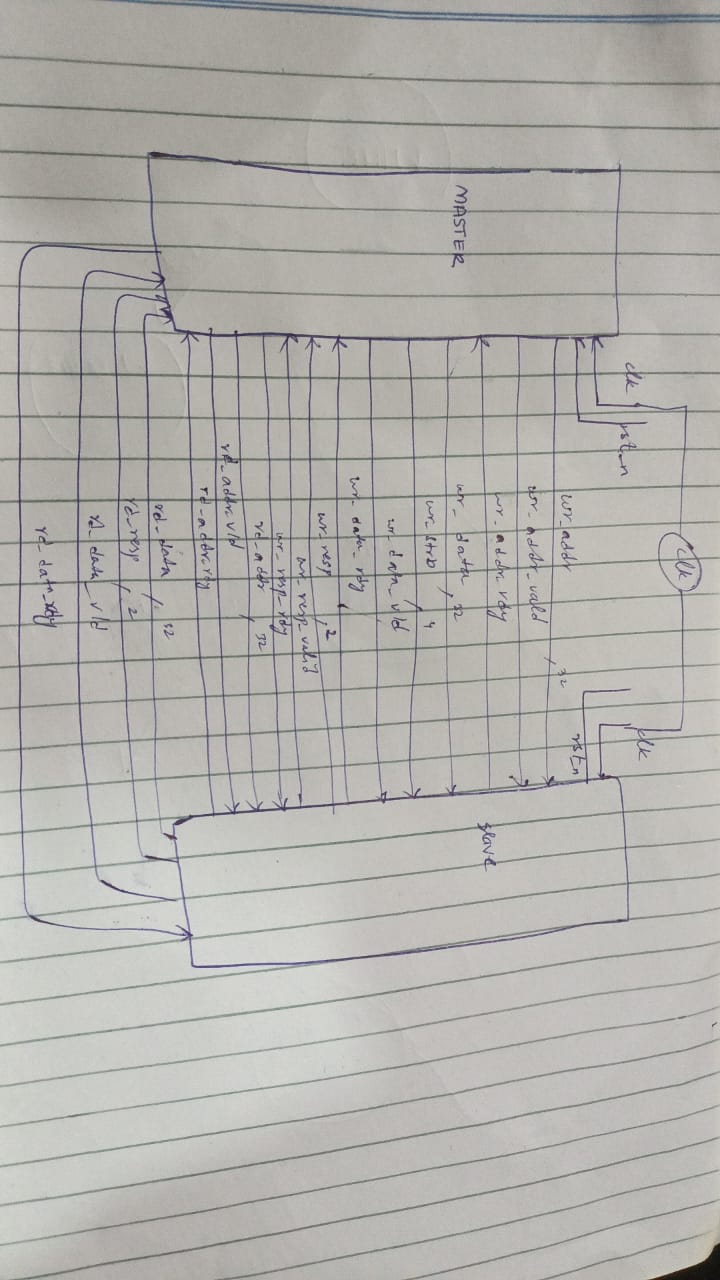 clk
clk
clk
rst_n
rst_n
MASTER
slave
wr_addr , 32
wr_addr_vald
wr_addr_rdy
wr_data , 32
wr_strb , 4
wr_data_vld
wr_data_rdy
wr_resp , 2
wr_resp_valid
wr_resp_rdy
rd_addr , 32
rd_addr_vld
rd_addr_rdy
rd_data , 32
rd_resp , 2
rd_data_vld
rd_data_rdy